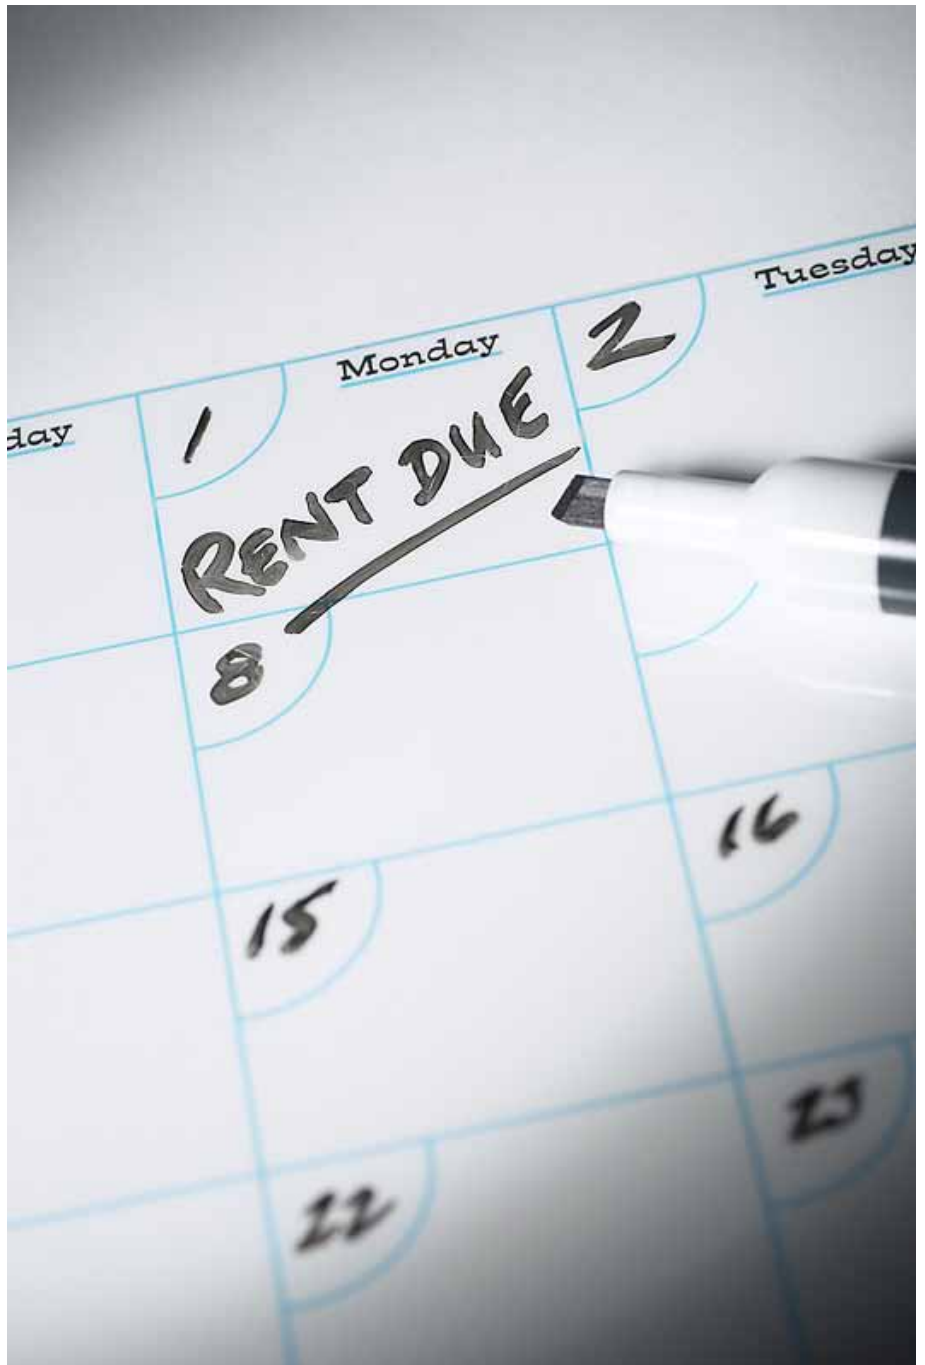 day Monday Tuesday
1 2
RENT DUE
8
15 16
22 23